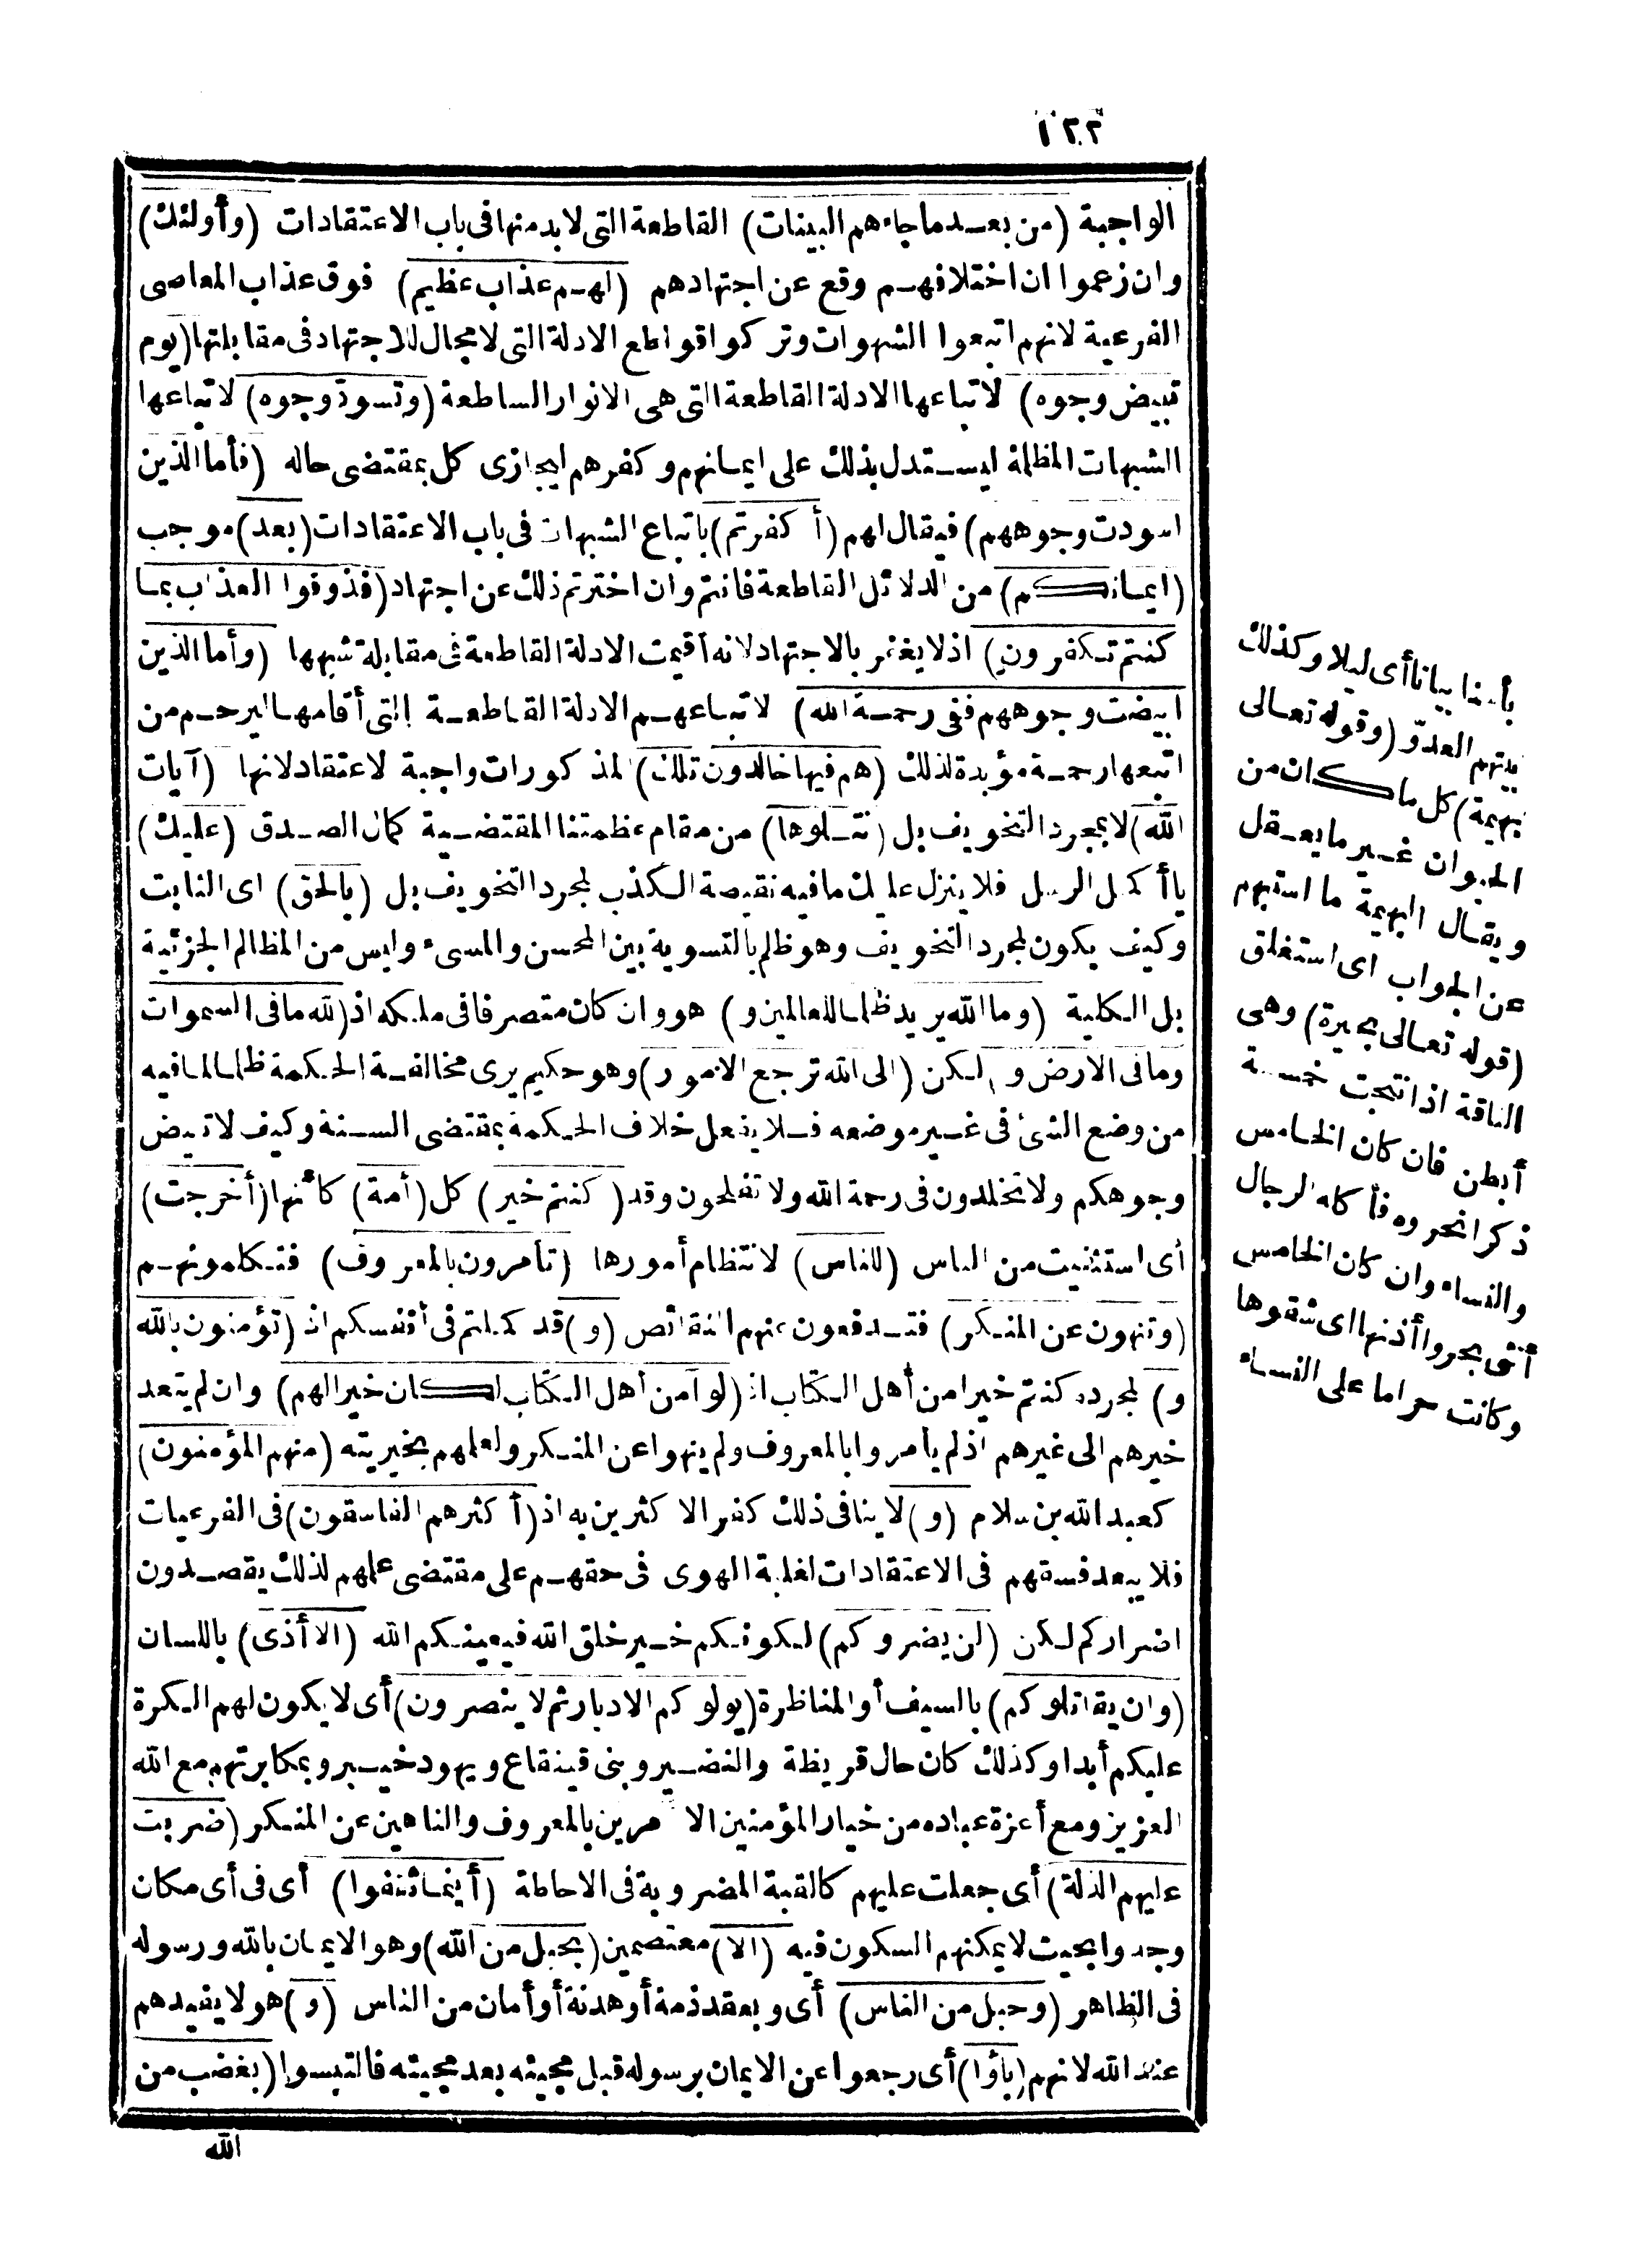 ١٢٢
الواجبة (من بعد ماجاءهم البينات) القاطعة التى لابد منها فى باب الاعتقادات (وأولئك)
وان زعموا ان اختلافهم وقع عن اجتهادهم (لهم عذاب عظيم) فوق عذاب المعاصى
الفرعية لانهم اتبعوا الشهوات وتركوا قواطع الادلة التى لا مجال للاجتهاد فى مقابلتها (يوم
تبيض وجوه) لاتباعها الادلة القاطعة التى هى الانوار الساطعة (وتسود وجوه) لاتباعها
الشبهات المظلمة ليستدل بذلك على ايمانهم وكفرهم ليجازى كل بمقتضى حاله (فأما الذين
اسودت وجوههم) فيقال لهم (أكفرتم) باتباع الشبهات فى باب الاعتقادات (بعد) موجب
(ايمانكم) من الدلائل القاطعة فانتم وان اخترتم ذلك عن اجتهاد (فذوقوا العذاب بما
كنتم تكفرون) اذ لا يغتفر بالاجتهاد لانه أقيمت الادلة القاطعة فى مقابلة شبهها (وأما الذين
ابيضت وجوههم ففى رحمة الله) لاتباعهم الادلة القاطعة التى أقامها ليرحم من
اتبعها رحمة مؤبدة لذلك (هم فيها خالدون تلك) المذكورات واجبة لاعتقاد لانها (آيات
الله) لا بمجرد التخويف بل (نتلوها) من مقام عظمتنا المقتضية كمال الصدق (عليك)
يا أكمل الرسل فلا ينزل عليك ما فيه نقيصة الكذب لمجرد التخويف بل (بالحق) اى الثابت
وكيف يكون لمجرد التخويف وهو ظلم بالتسوية بين المحسن والمسىء وليس من المظالم الجزئية
بل الكلية (وما الله يريد ظلما للعالمين و) هو وان كان متصرفا فى ملكه اذ (لله ما فى السموات
وما فى الارض و) لكن (الى الله ترجع الامور) وهو حكيم يرى مخالفة الحكمة ظلما لما فيه
من وضع الشئ فى غير موضعه فلا يفعل خلاف الحكمة بمقتضى السنة وكيف لا تبيض
وجوهكم ولا تخلدون فى رحمة الله ولا تفلحون وقد (كنتم خير) كل (أمة) كأنها (أخرجت)
أى استثنيت من الناس (للناس) لانتظام أمورها (تأمرون بالمعروف) فتكلمونهم
(وتنهون عن المنكر) فتدفعون عنهم النقائص (و) قد كملتم فى أنفسكم اذ (تؤمنون بالله
و) لمجرده كنتم خيرا من أهل الكتاب اذ (لو آمن أهل الكتاب لكان خيرا لهم) وان لم يتعد
خيرهم الى غيرهم اذ لم يأمروا بالمعروف ولم ينهوا عن المنكر ولعلمهم بخيريته (منهم المؤمنون)
كعبد الله بن سلام (و) لا ينافى ذلك كفر الاكثرين به اذ (أكثرهم الفاسقون) فى الفرعيات
فلا يبعد فسقهم فى الاعتقادات لغلبة الهوى فى حقهم على مقتضى علمهم لذلك يقصدون
اضراركم لكن (لن يضروكم) لكونكم خير خلق الله فيعينكم الله (الا أذى) باللسان
(وان يقاتلوكم) بالسيف أو المناظرة (يولوكم الادبار ثم لا ينصرون) أى لا يكون لهم الكرة
عليكم أبدا وكذلك كان حال قريظة والنضير وبنى قينقاع ويهود خيبر وبمكابرتهم مع الله
العزيز ومع أعزة عباده من خيار المؤمنين الآمرين بالمعروف والناهين عن المنكر (ضربت
عليهم الذلة) أى جعلت عليهم كالقبة المضروبة فى الاحاطة (أينما ثقفوا) أى فى أى مكان
وجدوا بحيث لا يمكنهم السكون فيه (الا) معتصمين (بحبل من الله) وهو الايمان بالله ورسوله
فى الظاهر (وحبل من الناس) أى وبعقد ذمة أو هدنة أو أمان من الناس (و) هو لا يفيدهم
عند الله لانهم (باؤا) أى رجعوا عن الايمان برسوله قبل مجيئه بعد مجيئه فالتبسوا (بغضب من
الله
بأسنا بياتا أى ليلا وكذلك
بيتهم العدوّ (وقوله تعالى
بهيمة) كل ما كان من
الحيوان غير ما يعقل
ويقال البهيمة ما استبهم
عن الجواب اى استغلق
(قوله تعالى بحيرة) وهى
الناقة اذا نتجت خمسة
أبطن فان كان الخامس
ذكرا نحروه فأكله الرجال
والنساء وان كان الخامس
أنثى بحروا أذنها اى شقوها
وكانت حراما على النساء